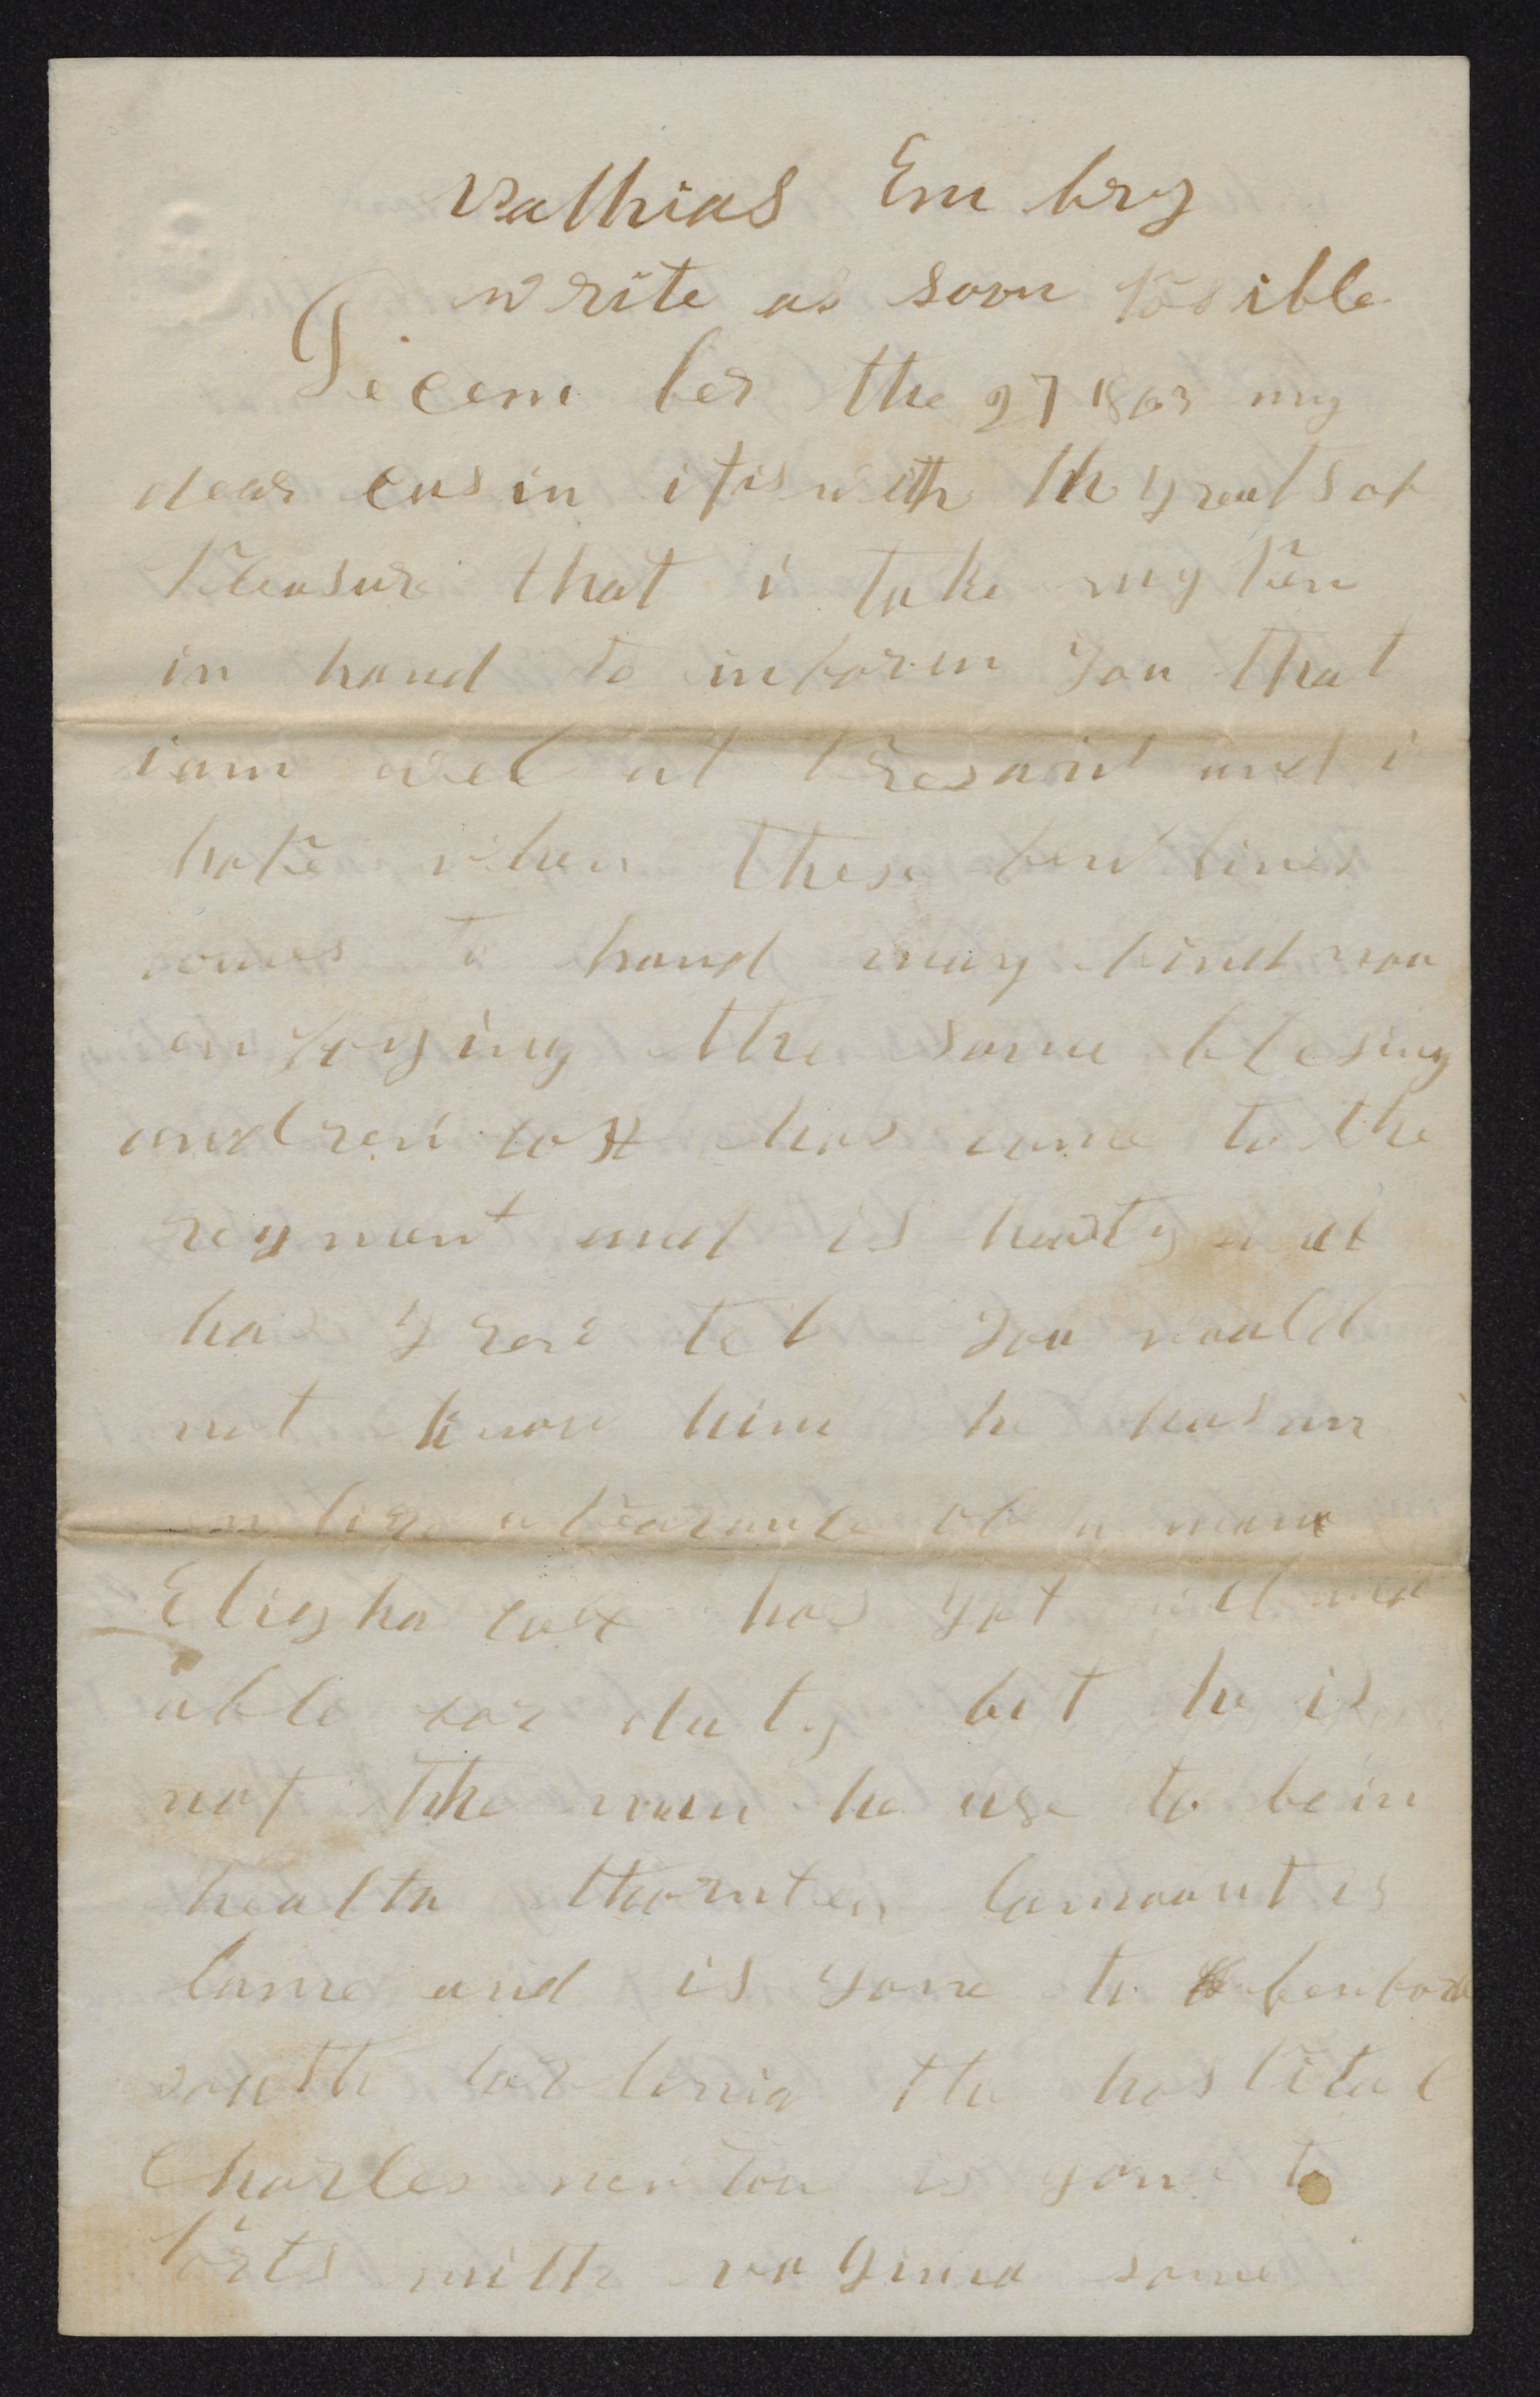 Mathias Em bry
write as soon posible
Decem ber the 27 1863 my
dear cusin itis with th greatsof
pleasure that i take my pen
in hand to inform you that
i am wel at presaint and i
hope when these few lines
comes to hand may find you
en joying the same blesing
and cox has came to the
regment and is hearty and
has grone tel you would
not know him he has an
apearance of a man
Eligha cox has got wel and
able for duty but he is
not the man he use to be in
health thornten lamount is
lame and is gone to
south the hospital
Charles newton is gone to
ports mith va some